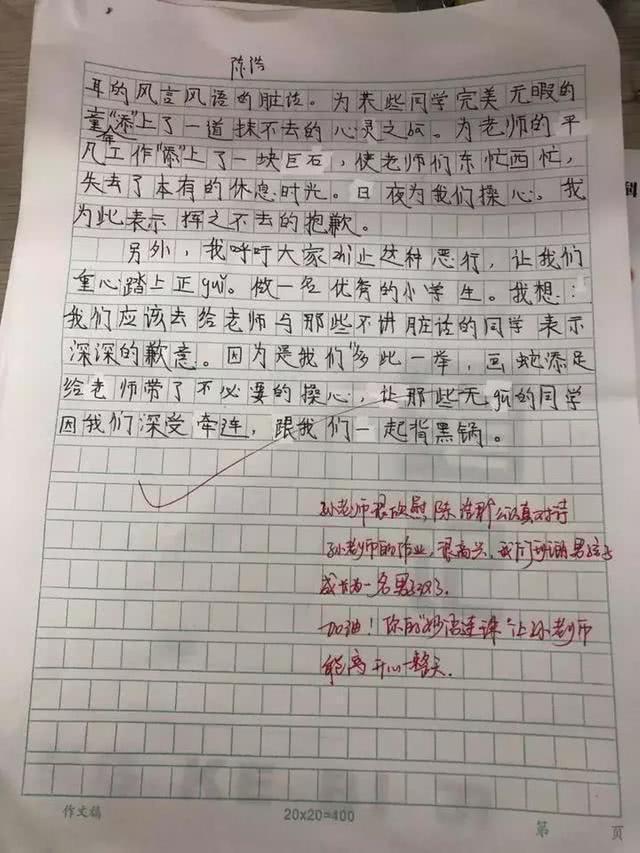 陈浩
耳的风言风语的脏话。为某些同学完美无暇的
童年“添”上了一道抹不去的心灵之
。为老师的平
凡工作“添”上了一块巨石，使老师们东忙西忙，
失去了本有的休息时光。日夜为我们操心、我
为此表示挥之不去的抱歉。
另外，我呼吁大家制止这种恶行，让我们
重心踏上正guǐ。做一名优秀的小学生。我想：
我们应该去给老师与那些不讲脏话的同学表示
深深的歉意。因为是我们“多此一举，画蛇添足
给老师带了不必要的操心，让那些无gū的同学
因我们深受牵连，跟我们一起背黑锅。
孙老师很欣慰，陈浩能认真对待
孙老师的作业，很高兴，我们班的男孩
成长为一名男子汉了。
加油！你的“妙语连珠”让孙老师
能高开心一整天.
作文稿
20x20=400
第 页